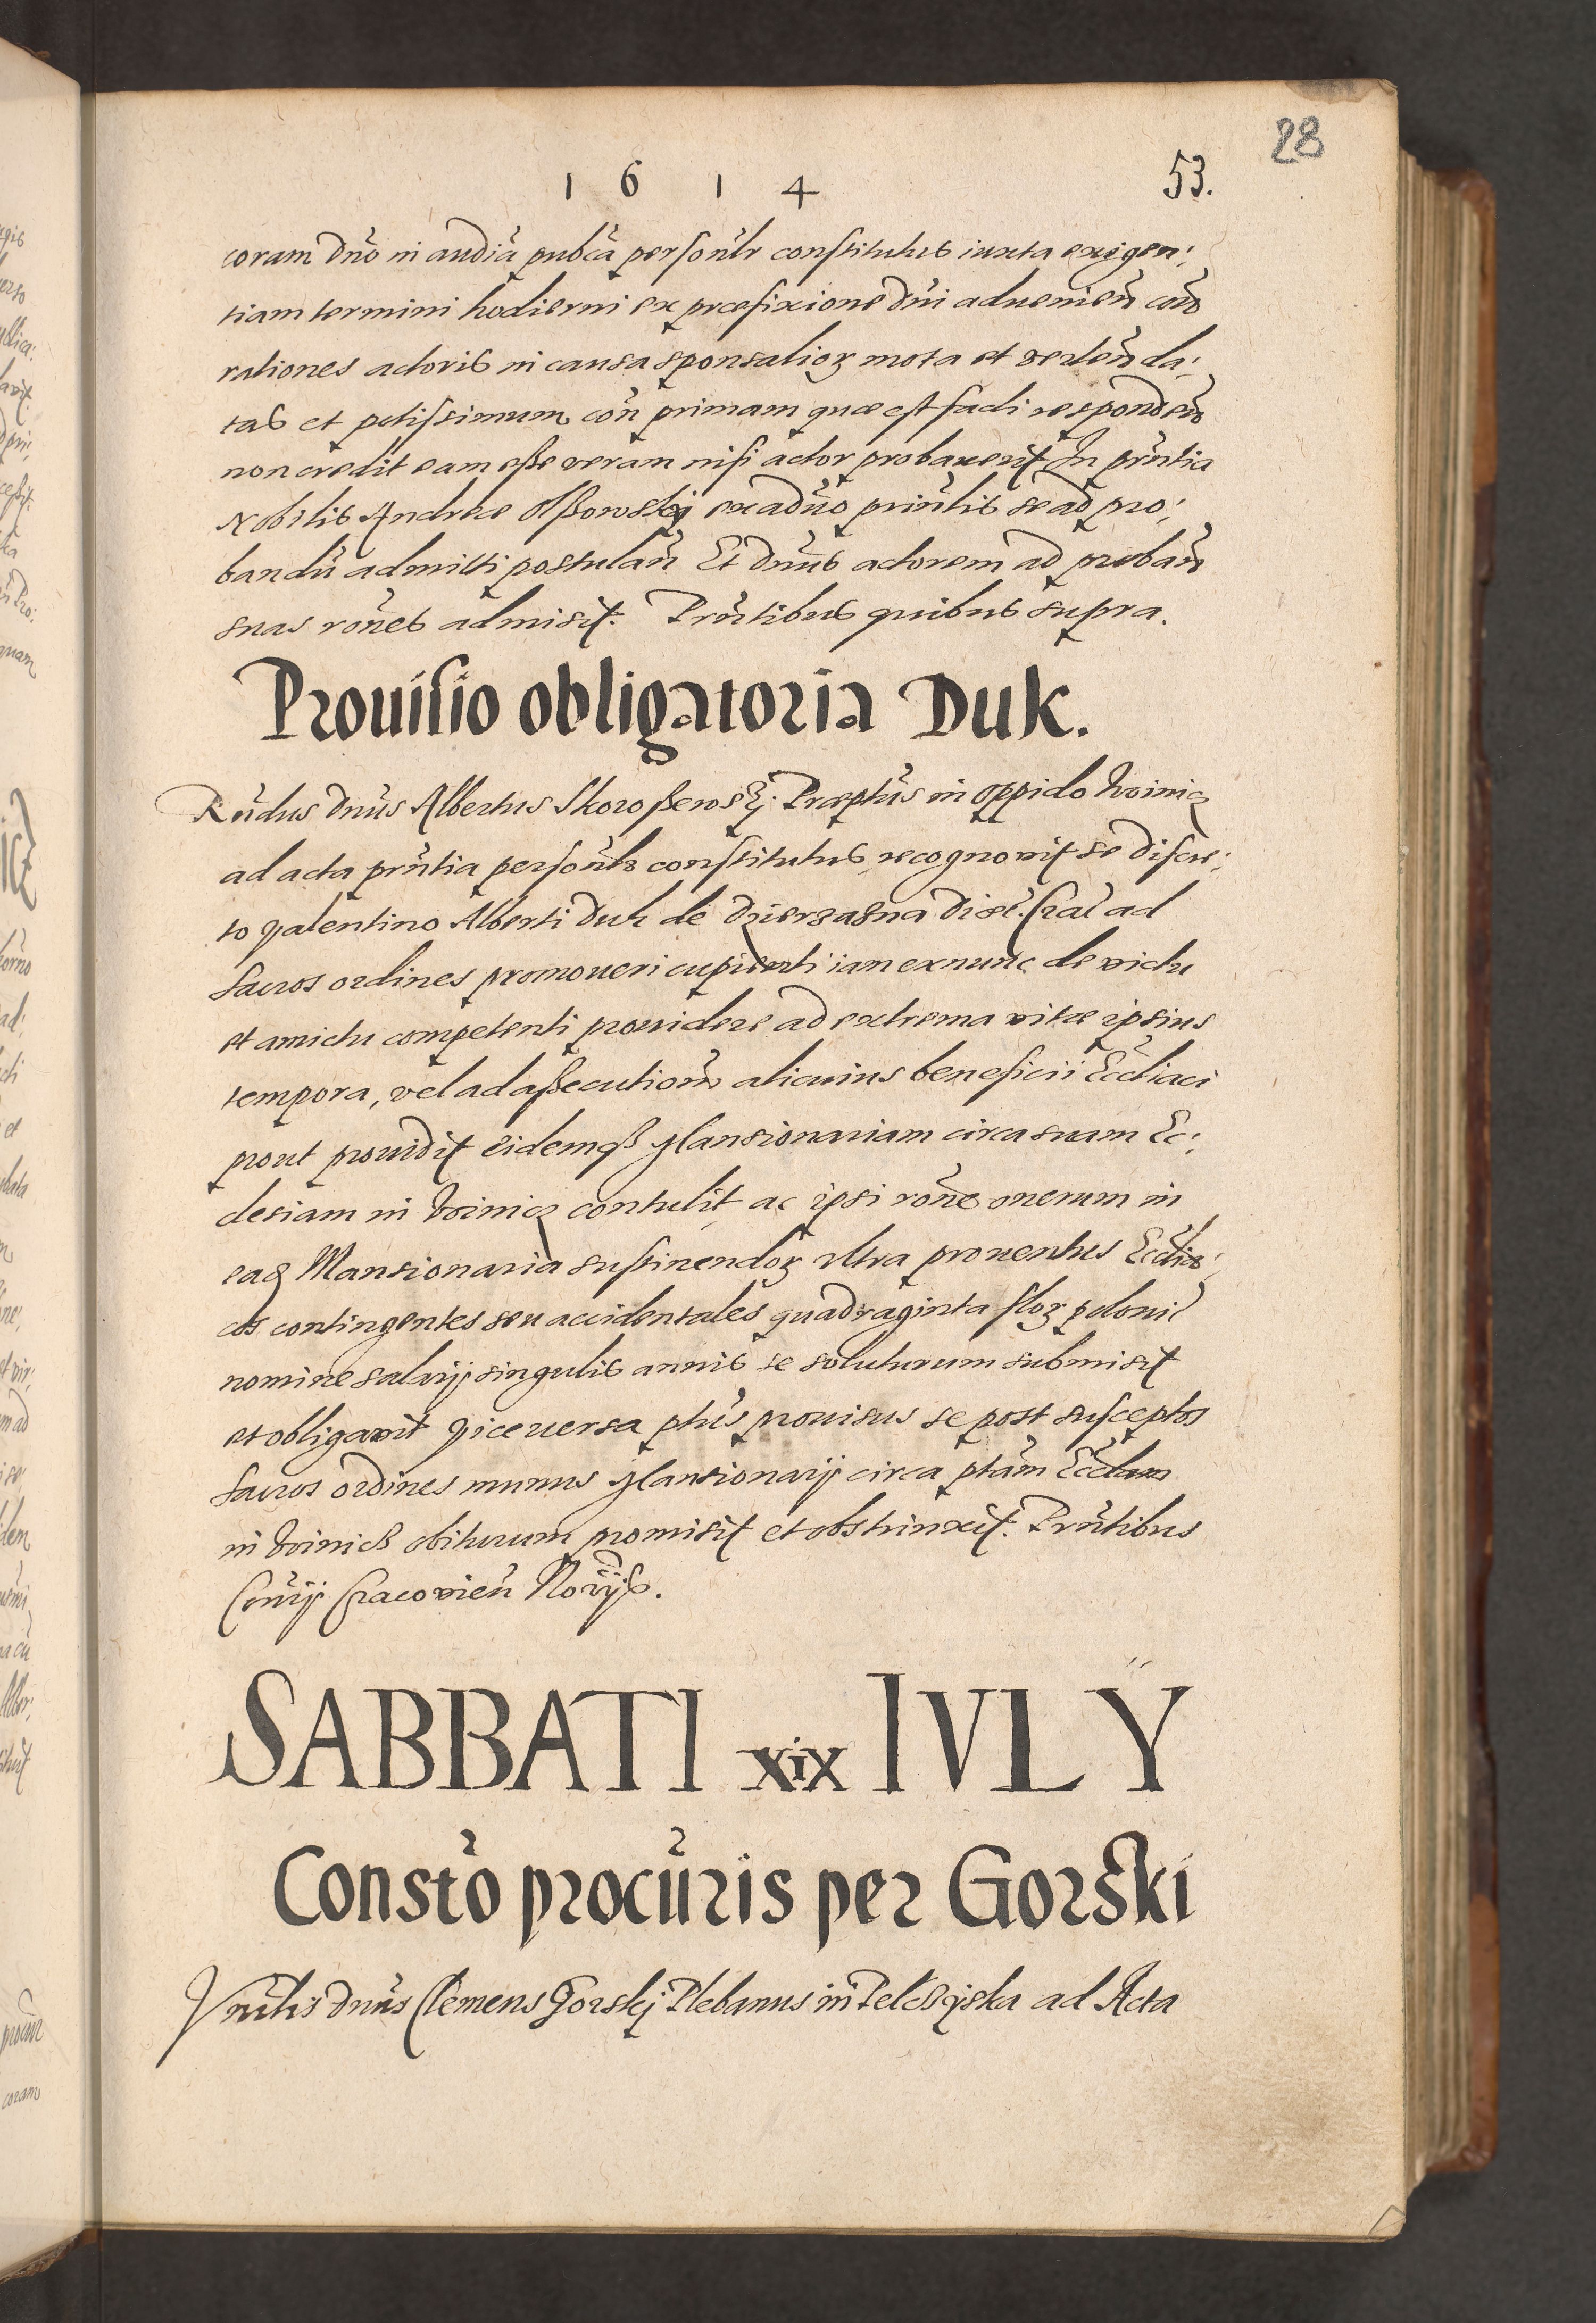 28
1 6 1 4 53.
coram Dno in audia publca personlr constitutus iuxta exigen:
tiam termini hodierni ex præfixione Dni aduenien con
rationes actoris in causa sponsalioꝝ mota et verten da:
tas et potissimum con primam quæ est facti responden
non credit eam esse veram nisi actor probauerit In prntia
Nobilis Andreæ Olßowskij ex aduo prinlis se ad pro:
bandu admitti postulan Et Dnus actorem ad proban
suas rones admisit. Prntibus quibus supra.
Prouisio obligatoria Duk.
Rndus Dnus Albertus Skoroßewskj Præptus in oppido Woinicz
ad acta prntia personlr constitutus recognovit se discre:
to Valentino Alberti Duk de Dzierzazna Dioec. Crac ad
sacros ordines promoueri cupienti iam exnunc de victu
et amictu competenti prouidere ad extrema vitæ ipsius
tempora, vel ad assecutionem alicuius beneficii Eccliaci
prout prouidit eidemqꝫ Mansionariam circa suam Ec:
clesiam in Woinicz contulit ac ipsi rone onerum in
eaꝗ Mansionaria sustinendoꝝ vltra prouentus Ecclias:
cos contingentes seu accidentales quadraginta floꝝ polonic
nomine salarij singulis annis se soluturum submisit
et obligavit Vice uersa ptus prouisus se post susceptos
sacros ordines munus Mansionarij circa ptam Ecclam
in Woinicß obiturum promisit et obstrinxit. Prntibus
Conrij Cracovien Norijs.
SABBATI xix IVLŸ
Consto procuris per Gorski
Vnrlis Dnus Clemens Gorskj Plebanus in Pelcßijska ad Acta